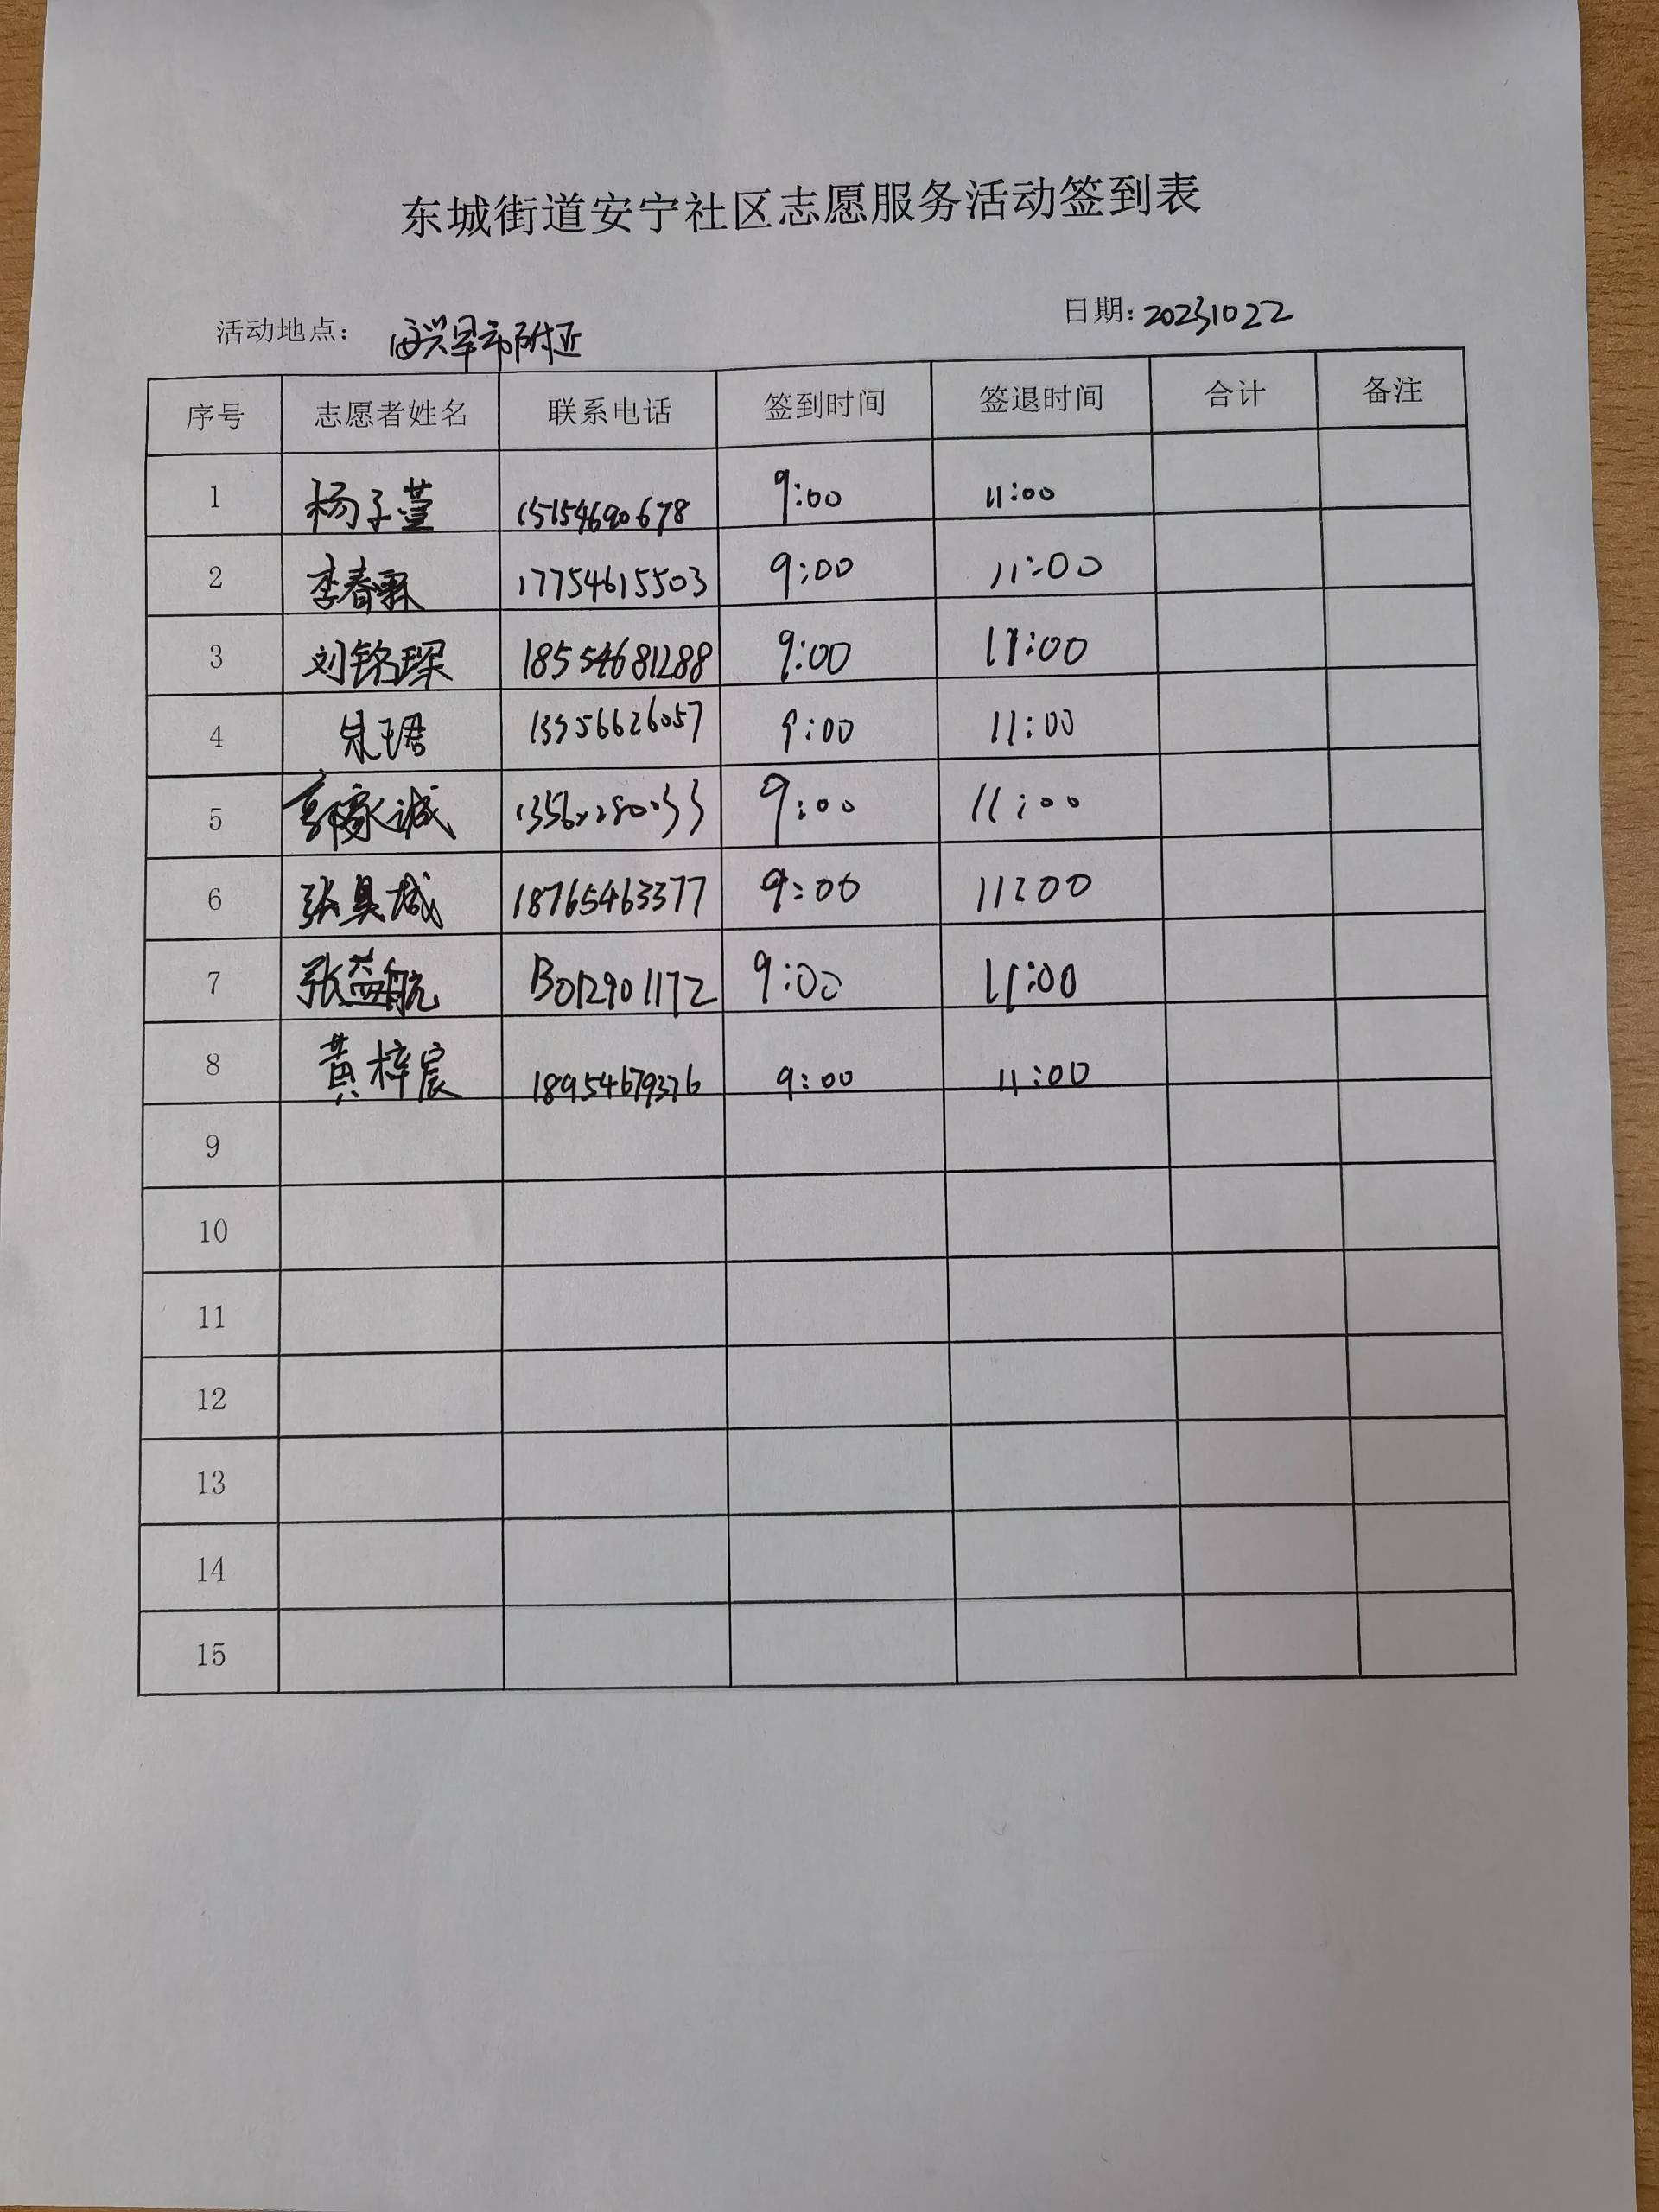 东城街道安宁社区志愿服务活动签到表
活动地点: 安兴早市附近 日期: 20231022
序号 志愿者姓名 联系电话 签到时间 签退时间 合计 备注
1 杨子萱 15154690678 9:00 11:00
2 李春霖 17754615503 9:00 11:00
3 刘铭琛 18554681288 9:00 11:00
4 13356626057 9:00 11:00
5 郭家诚 9:00 11:00
6 18765463377 9:00 11:00
7 张益航 13012901172 9:00 11:00
8 黄梓宸 18954679376 9:00 11:00
9
10
11
12
13
14
15